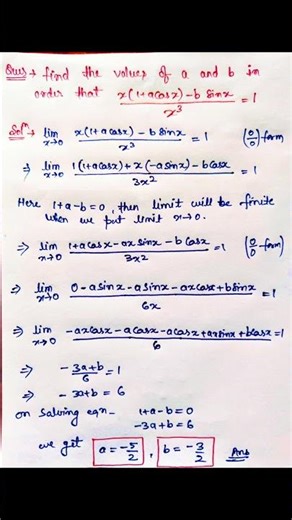 Ques → find the values of a and b in
order that x(1+acosx)-b sinx / x³ = 1
Solⁿ→ lim x→0 x(1+acosx)-b sinx / x³ = 1 (0/0) form
⇒ lim x→0 1(1+acosx)+x(-asinx)-bcosx / 3x² = 1
Here 1+a-b=0, then limit will be finite
when we put limit x→0.
⇒ lim x→0 1+acosx-ax sinx-b cosx / 3x² = 1 (0/0 form)
⇒ lim x→0 0-asinx-asinx-axcosx+bsinx / 6x = 1
⇒ lim x→0 -axcosx-acosx-acosx+axsinx+bcosx / 6 = 1
⇒ -3a+b / 6 = 1
⇒ -3a+b = 6
on solving eqn- 1+a-b=0
-3a+b=6
we get a = -5/2 , b = -3/2 Ans